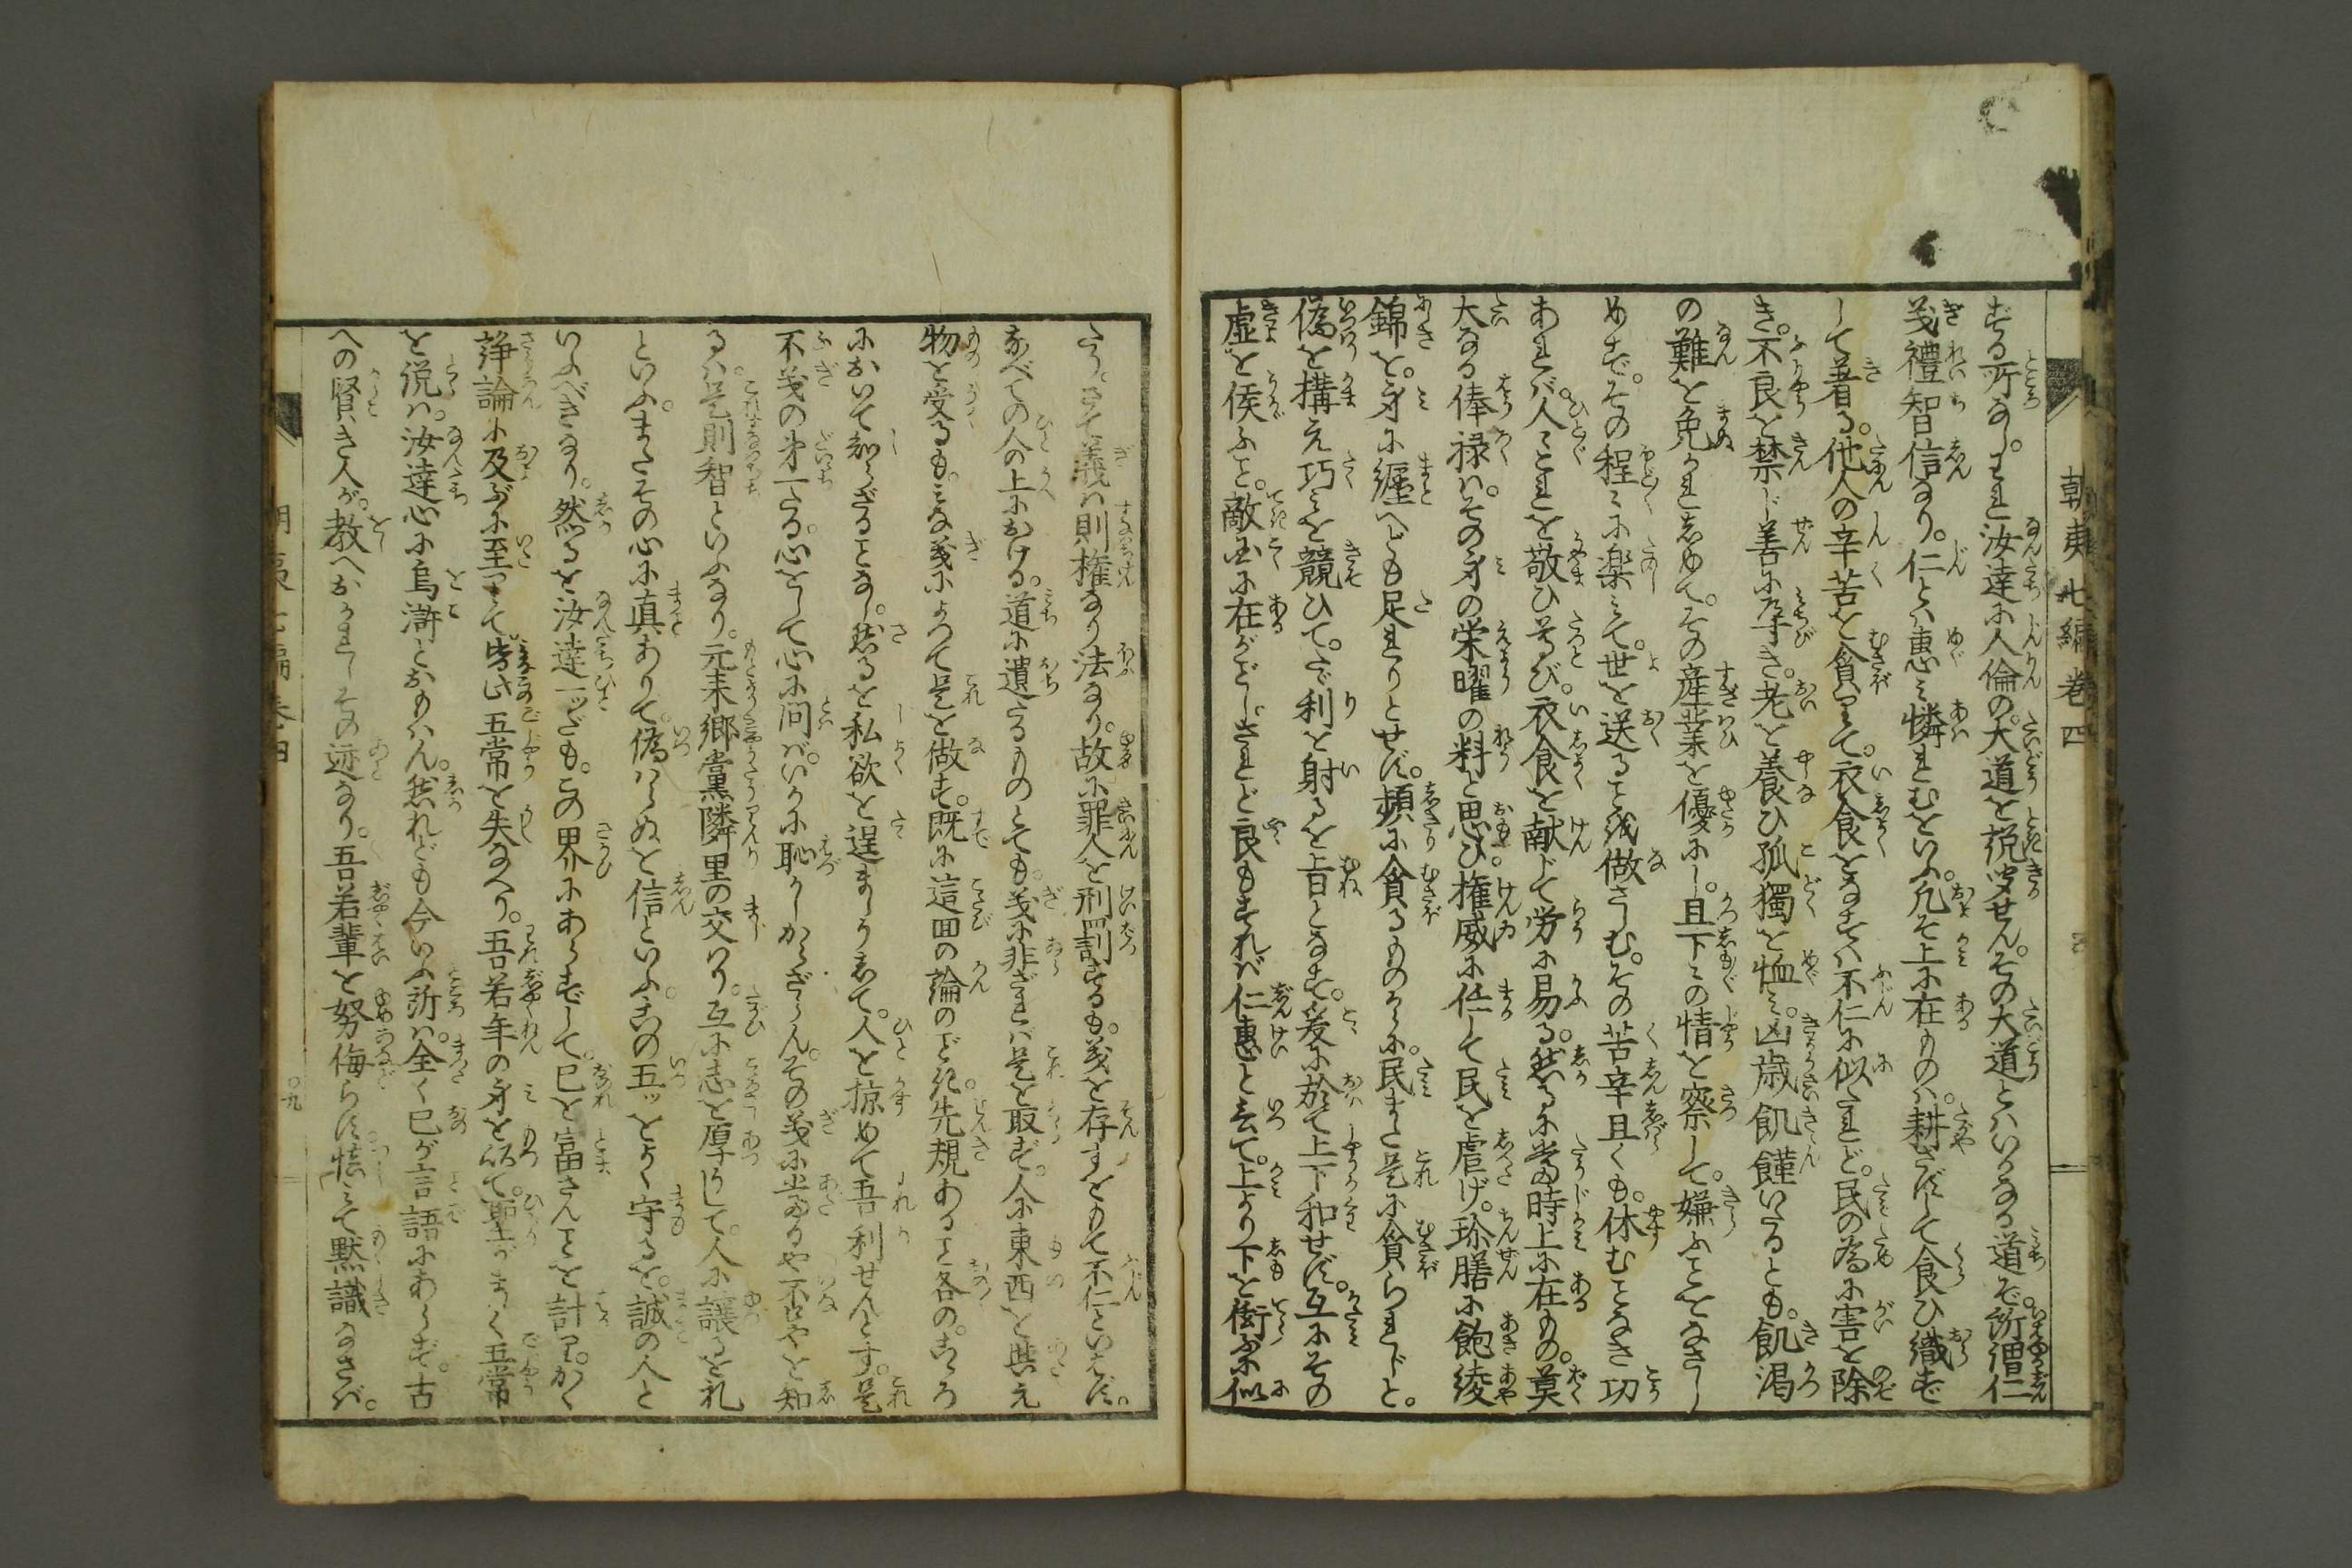 朝夷七編巻四
ずる所なし。われ汝達に人倫の大道を説聞せん。その大道とはいかなる道ぞ。所謂仁
義禮智信なり。仁とは惠み憐れむをいふ。凡そ上に在ものは。耕さずして食ひ織ず
して着る。他人の辛苦を貪りて。衣食をなすは不仁に似たれど。民の為に害を除
き。不良を禁じ善に導き。老を養ひ孤獨を恤み。凶歳飢饉いたるとも。飢渇
の難を免かれしめて。その産業を優にし。且下々の情を察して。嫌ふことをなさし
めず。その程々に楽みて。世を送ること我做さしむ。その苦辛且くも。休むことなき功
あれバ。人々これを敬ひ尊び。衣食を献じて労に易る。然るに當時上に在もの。莫
大なる俸禄は。その身の栄曜の料と思ひ。権威に任して民を虐げ。珍膳に飽綾
錦を。身に纏へども足れりとせず。頻に貪るものから。民また是に貪られじと。
偽を構え巧みを競ひて。たゞ利を射るを旨となす。爰に於て上下和せず。互にその
虚を候ふこと。敵国に在がごとし。されど良もすれば仁惠と云て。上より下を衒ふに似
たり。さて義は則権なり法なり。故に罪人を刑罰するも。義を存すをもて不仁といはず。
なべての人の上における。道に遺たるものとても。義に非ざれば是を取ず。人に東西を與え
物を受るも。みな義によつて是を做す。既に這回の論のごとき。先規あること各の。こゝろ
において知らざることなし。然るを私欲を逞ましうして。人を掠めて吾利せんとす。是
不義の第一たる。心をして心に問ば。いかに恥かしからざらん。その義に當るや不やを知
るは。是則智といふなり。元来郷黨隣里の交はり。互に志を厚うして。人に譲るを礼
といふ。またその心に真ありて。偽はらぬを信といふ。この五ツをよく守るを。誠の人と
いふべきなり。然るを汝達一ツだも。この界にあらずして。己を富さんことを計り。かく
諍論に及ぶに至りて。皆此五常を失なへり。吾若年の身をもて。聖がましく五常
を説は。汝達心に烏滸とおもはん。然れども今いふ所は。全く己が言語にあらず。古
への賢き人が。教へおかれしその迹なり。吾若輩を努侮らず。悟りて黙識なさば。
朝夷七編巻四
〇九